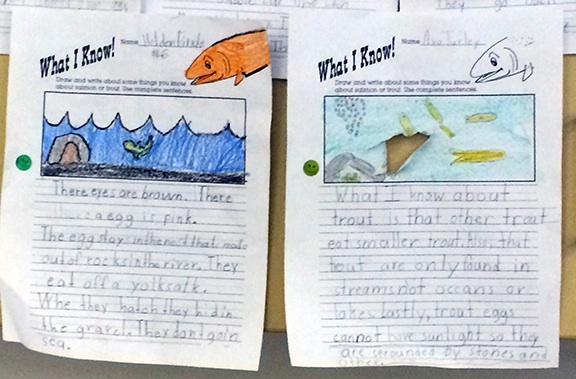 They go
What I Know!
Name
#6
Draw and write about some things you know
about salmon or trout. Use complete sentences.
There eyes are brown. There
a egg is pink.
The egg stay in the nest that made
out of rocks in the river. They
eat off a yolksalk.
Whe they hatch they hid in
the gravel. They dont go in
sea.
What I Know!
Name Ava Turley
Draw and write about some things you know
about salmon or trout. Use complete sentences.
What I know about
trout is that other troat
eat smaller trout. Also, that
trout are only found in
streams not occans or
lakes. Lastly, trout eggs
cannot have sunlight so they
are serounded by stones and